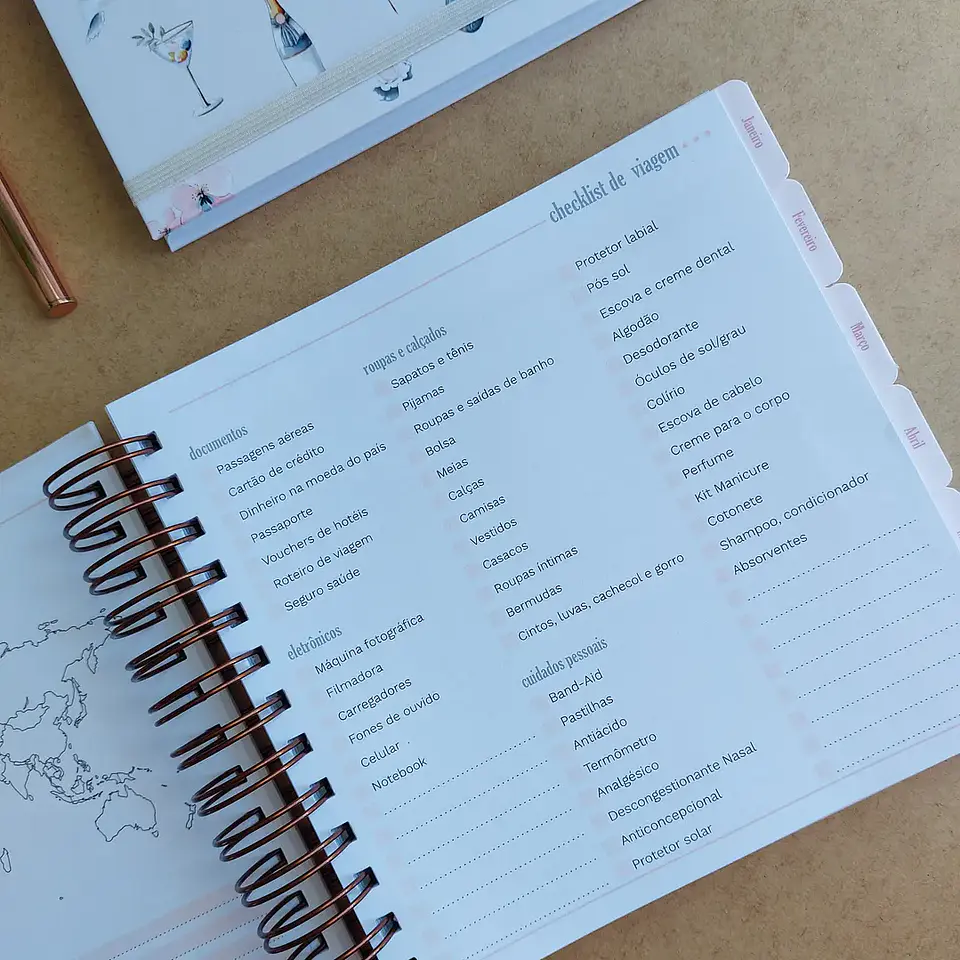 checklist de viagem
documentos
Passagens aéreas
Cartão de crédito
Dinheiro na moeda do país
Passaporte
Vouchers de hotéis
Roteiro de viagem
Seguro saúde
eletrônicos
Máquina fotográfica
Filmadora
Carregadores
Fones de ouvido
Celular
Notebook
roupas e calçados
Sapatos e tênis
Pijamas
Roupas e saídas de banho
Bolsa
Meias
Calças
Camisas
Vestidos
Casacos
Roupas íntimas
Bermudas
Cintos, luvas, cachecol e gorro
cuidados pessoais
Band-Aid
Pastilhas
Antiácido
Termômetro
Analgésico
Descongestionante Nasal
Anticoncepcional
Protetor solar
Protetor labial
Pós sol
Escova e creme dental
Algodão
Desodorante
Óculos de sol/grau
Colírio
Escova de cabelo
Creme para o corpo
Perfume
Kit Manicure
Cotonete
Shampoo, condicionador
Absorventes
Janeiro
Fevereiro
Março
Abril